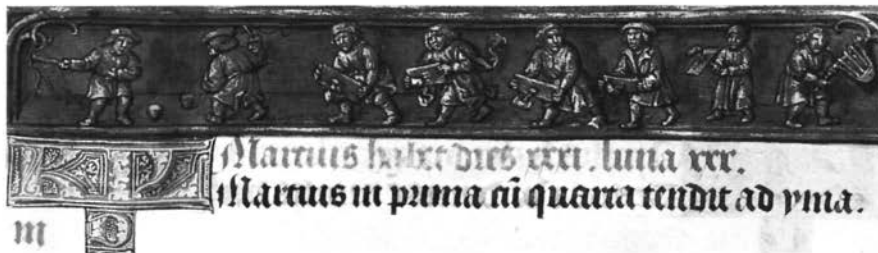 KL
Martius habet dies xxxi. luna xxx.
Martius in prima cū quarta tendit ad yma.
m